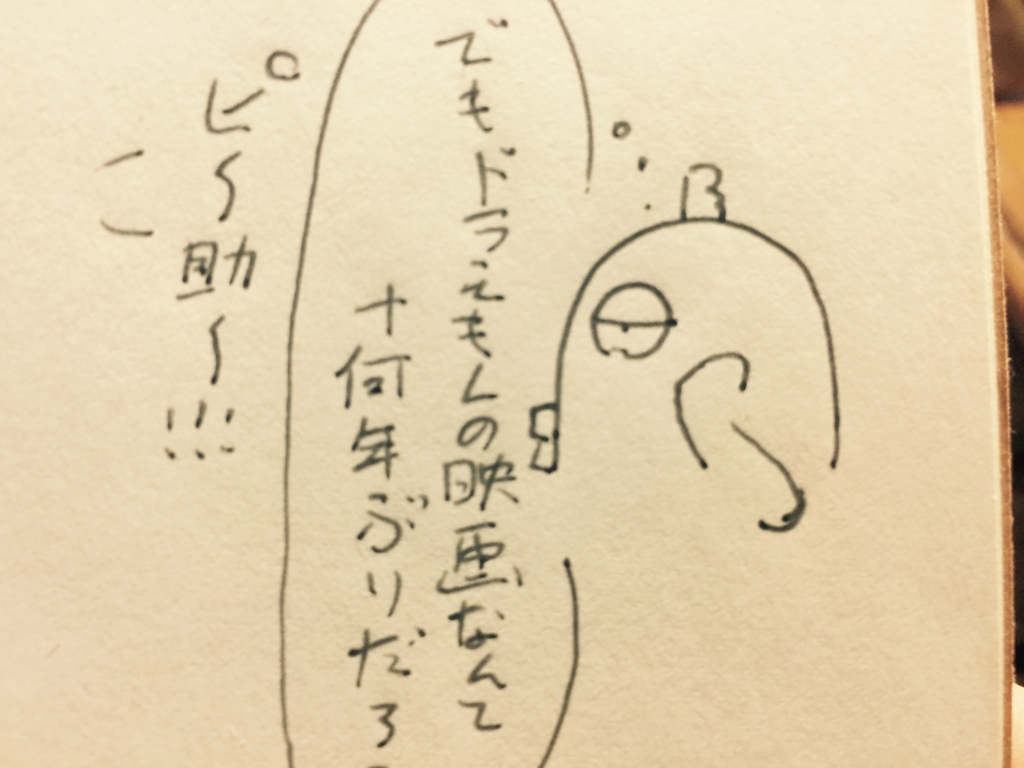 でもドラえもんの映画なんて
十何年ぶりだろ
ピ〜助〜!!!